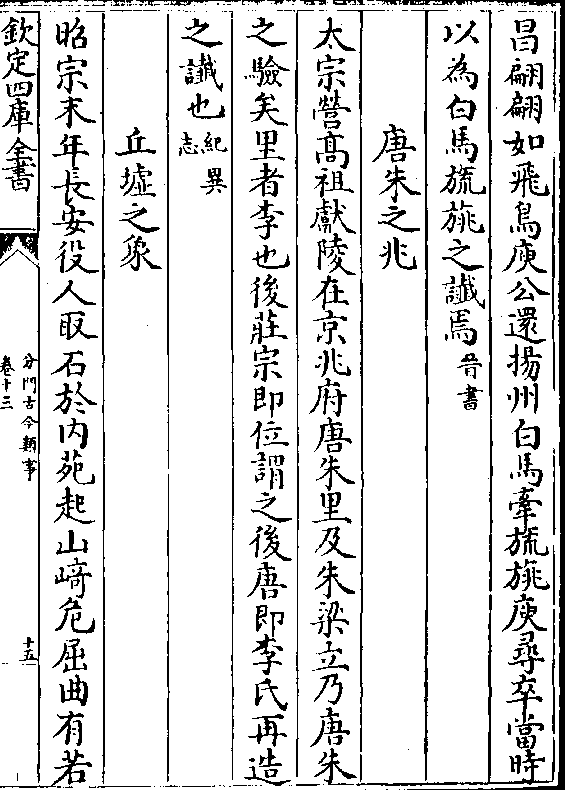 昌翩翩如飛鳥庾公還揚州白馬牽旒旐庾尋卒當時
以為白馬旒旐之讖焉晉書
唐朱之兆
太宗營髙祖獻陵在京兆府唐朱里及朱梁立乃唐朱
之驗矣里者李也後莊宗即位謂之後唐即李氏再造
之讖也紀異志
丘墟之象
昭宗末年長安役人取石於内苑起山﨑危屈曲有若
欽定四庫全書
分門古今類事
卷十三
十五